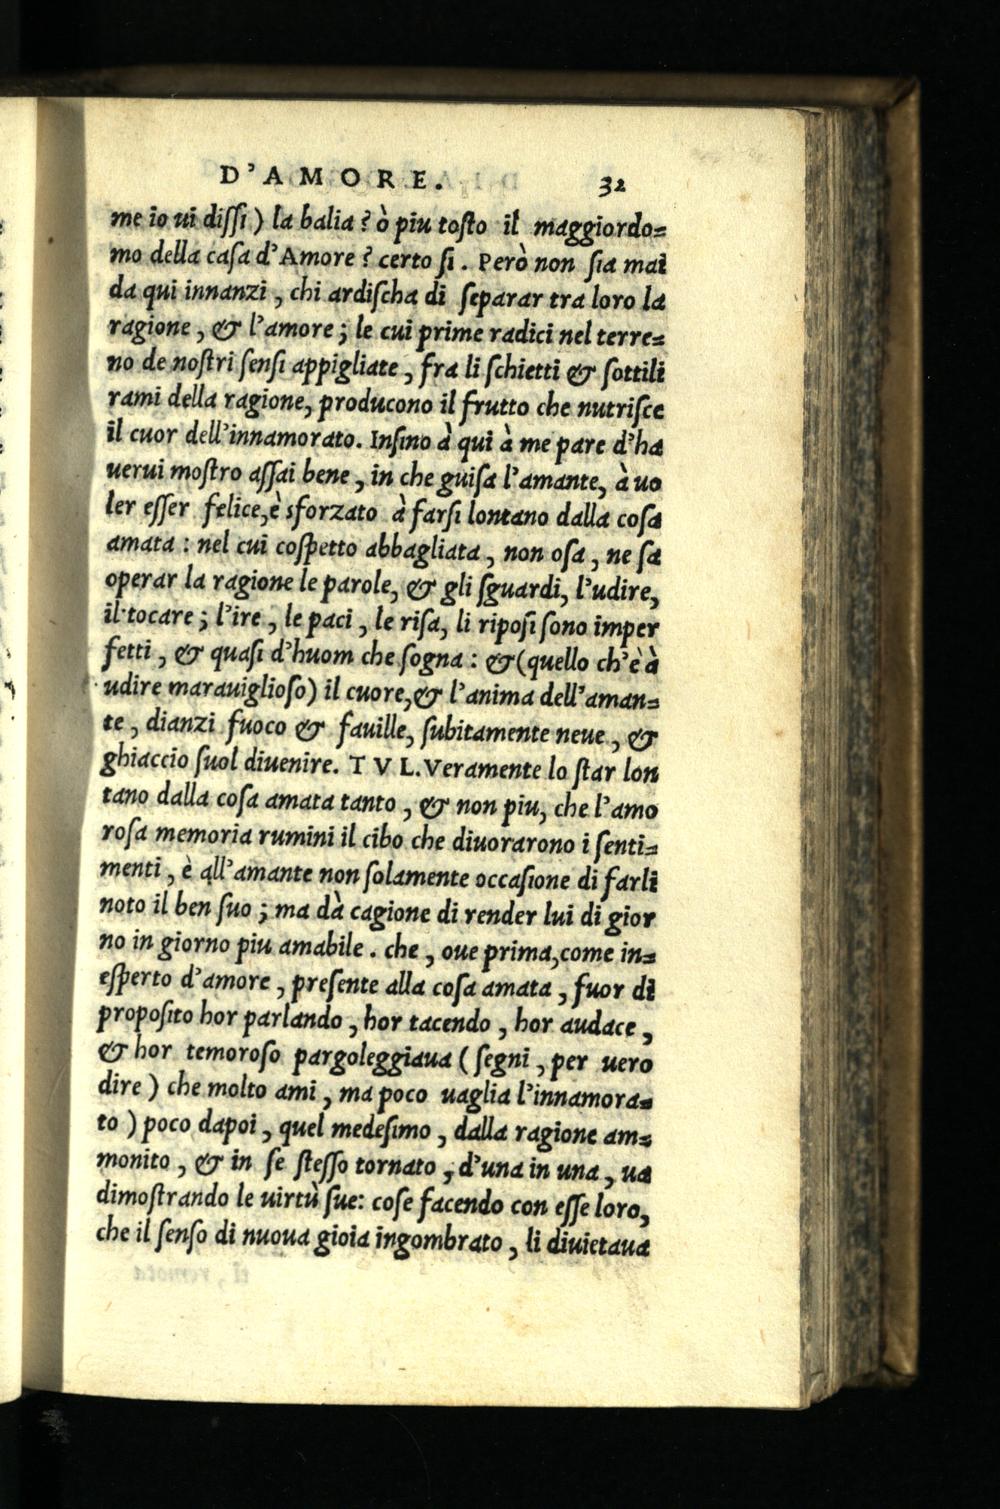 D'AMORE. 32
me io ui diſſi) la balia? ò piu toſto il maggiordo=
mo della caſa d'Amore? certo ſi. Però non ſia mai
da qui innanzi, chi ardiſcha di ſeparar tra loro la
ragione, & l'amore; le cui prime radici nel terre=
no de noſtri ſenſi appigliate, fra li ſchietti & ſottili
rami della ragione, producono il frutto che nutriſce
il cuor dell'innamorato. Inſino à qui à me pare d'ha
uerui moſtro aſſai bene, in che guiſa l'amante, à uo
ler eſſer felice, è sforzato à farſi lontano dalla coſa
amata: nel cui coſpetto abbagliata, non oſa, ne ſa
operar la ragione le parole, & gli ſguardi, l'udire,
il tocare; l'ire, le paci, le riſa, li ripoſi ſono imper
fetti, & quaſi d'huom che ſogna: & (quello ch'è à
udire marauiglioſo) il cuore, & l'anima dell'aman=
te, dianzi fuoco & fauille, ſubitamente neue, &
ghiaccio ſuol diuenire. TVL. Veramente lo ſtar lon
tano dalla coſa amata tanto, & non piu, che l'amo
roſa memoria rumini il cibo che diuorarono i ſenti=
menti, è all'amante non ſolamente occaſione di farli
noto il ben ſuo; ma dà cagione di render lui di gior
no in giorno piu amabile. che, oue prima, come in=
eſperto d'amore, preſente alla coſa amata, fuor di
propoſito hor parlando, hor tacendo, hor audace,
& hor temoroſo pargoleggiaua (ſegni, per uero
dire) che molto ami, ma poco uaglia l'innamora=
to) poco dapoi, quel medeſimo, dalla ragione am=
monito, & in ſe ſteſſo tornato, d'una in una, ua
dimoſtrando le uirtù ſue: coſe facendo con eſſe loro,
che il ſenſo di nuoua gioia ingombrato, li diuietaua